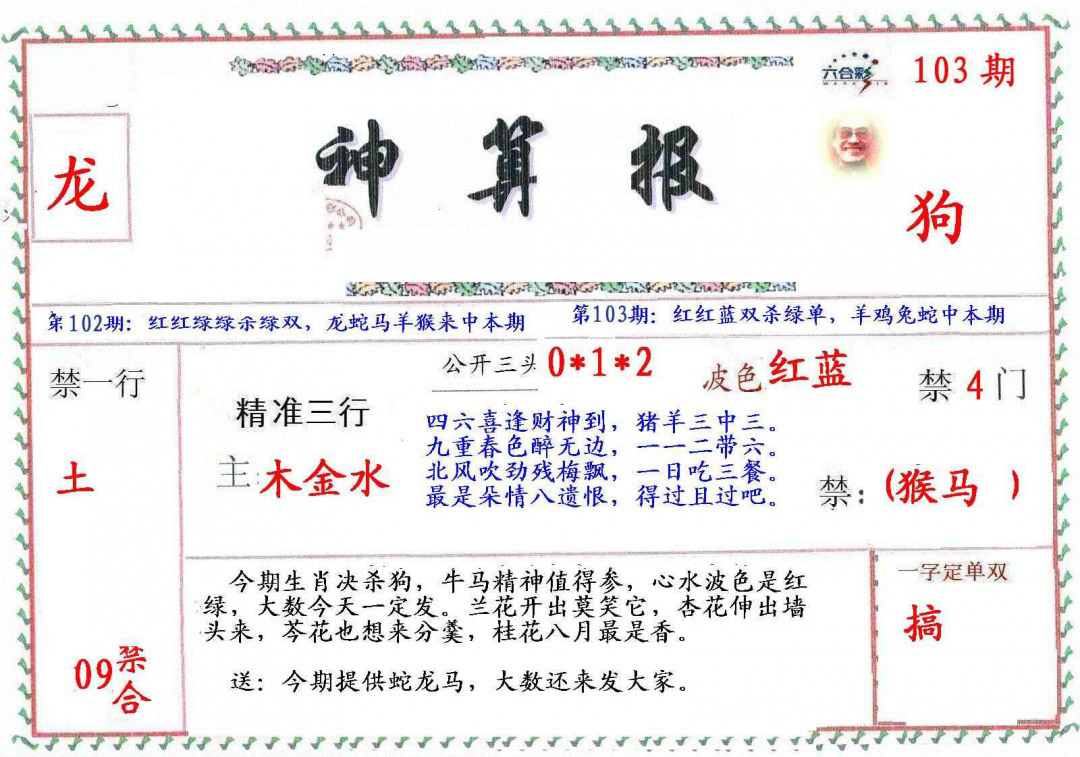 六合彩
103期
龙
神算报
狗
第102期：红红绿绿杀绿双，龙蛇马羊猴来中本期
第103期：红红蓝双杀绿单，羊鸡兔蛇中本期
禁一行
土
09禁合
精准三行
主:木金水
公开三头0*1*2
波色红蓝
四六喜逢财神到，猪羊三中三。
九重春色醉无边，一一二带六。
北风吹劲残梅飘，一日吃三餐。
最是朵情八遗恨，得过且过吧。
禁4门
禁：(猴马 )
今期生肖决杀狗，牛马精神值得参，心水波色是红
绿，大数今天一定发。兰花开出莫笑它，杏花伸出墙
头来，芩花也想来分羹，桂花八月最是香。
送：今期提供蛇龙马，大数还来发大家。
一字定单双
搞